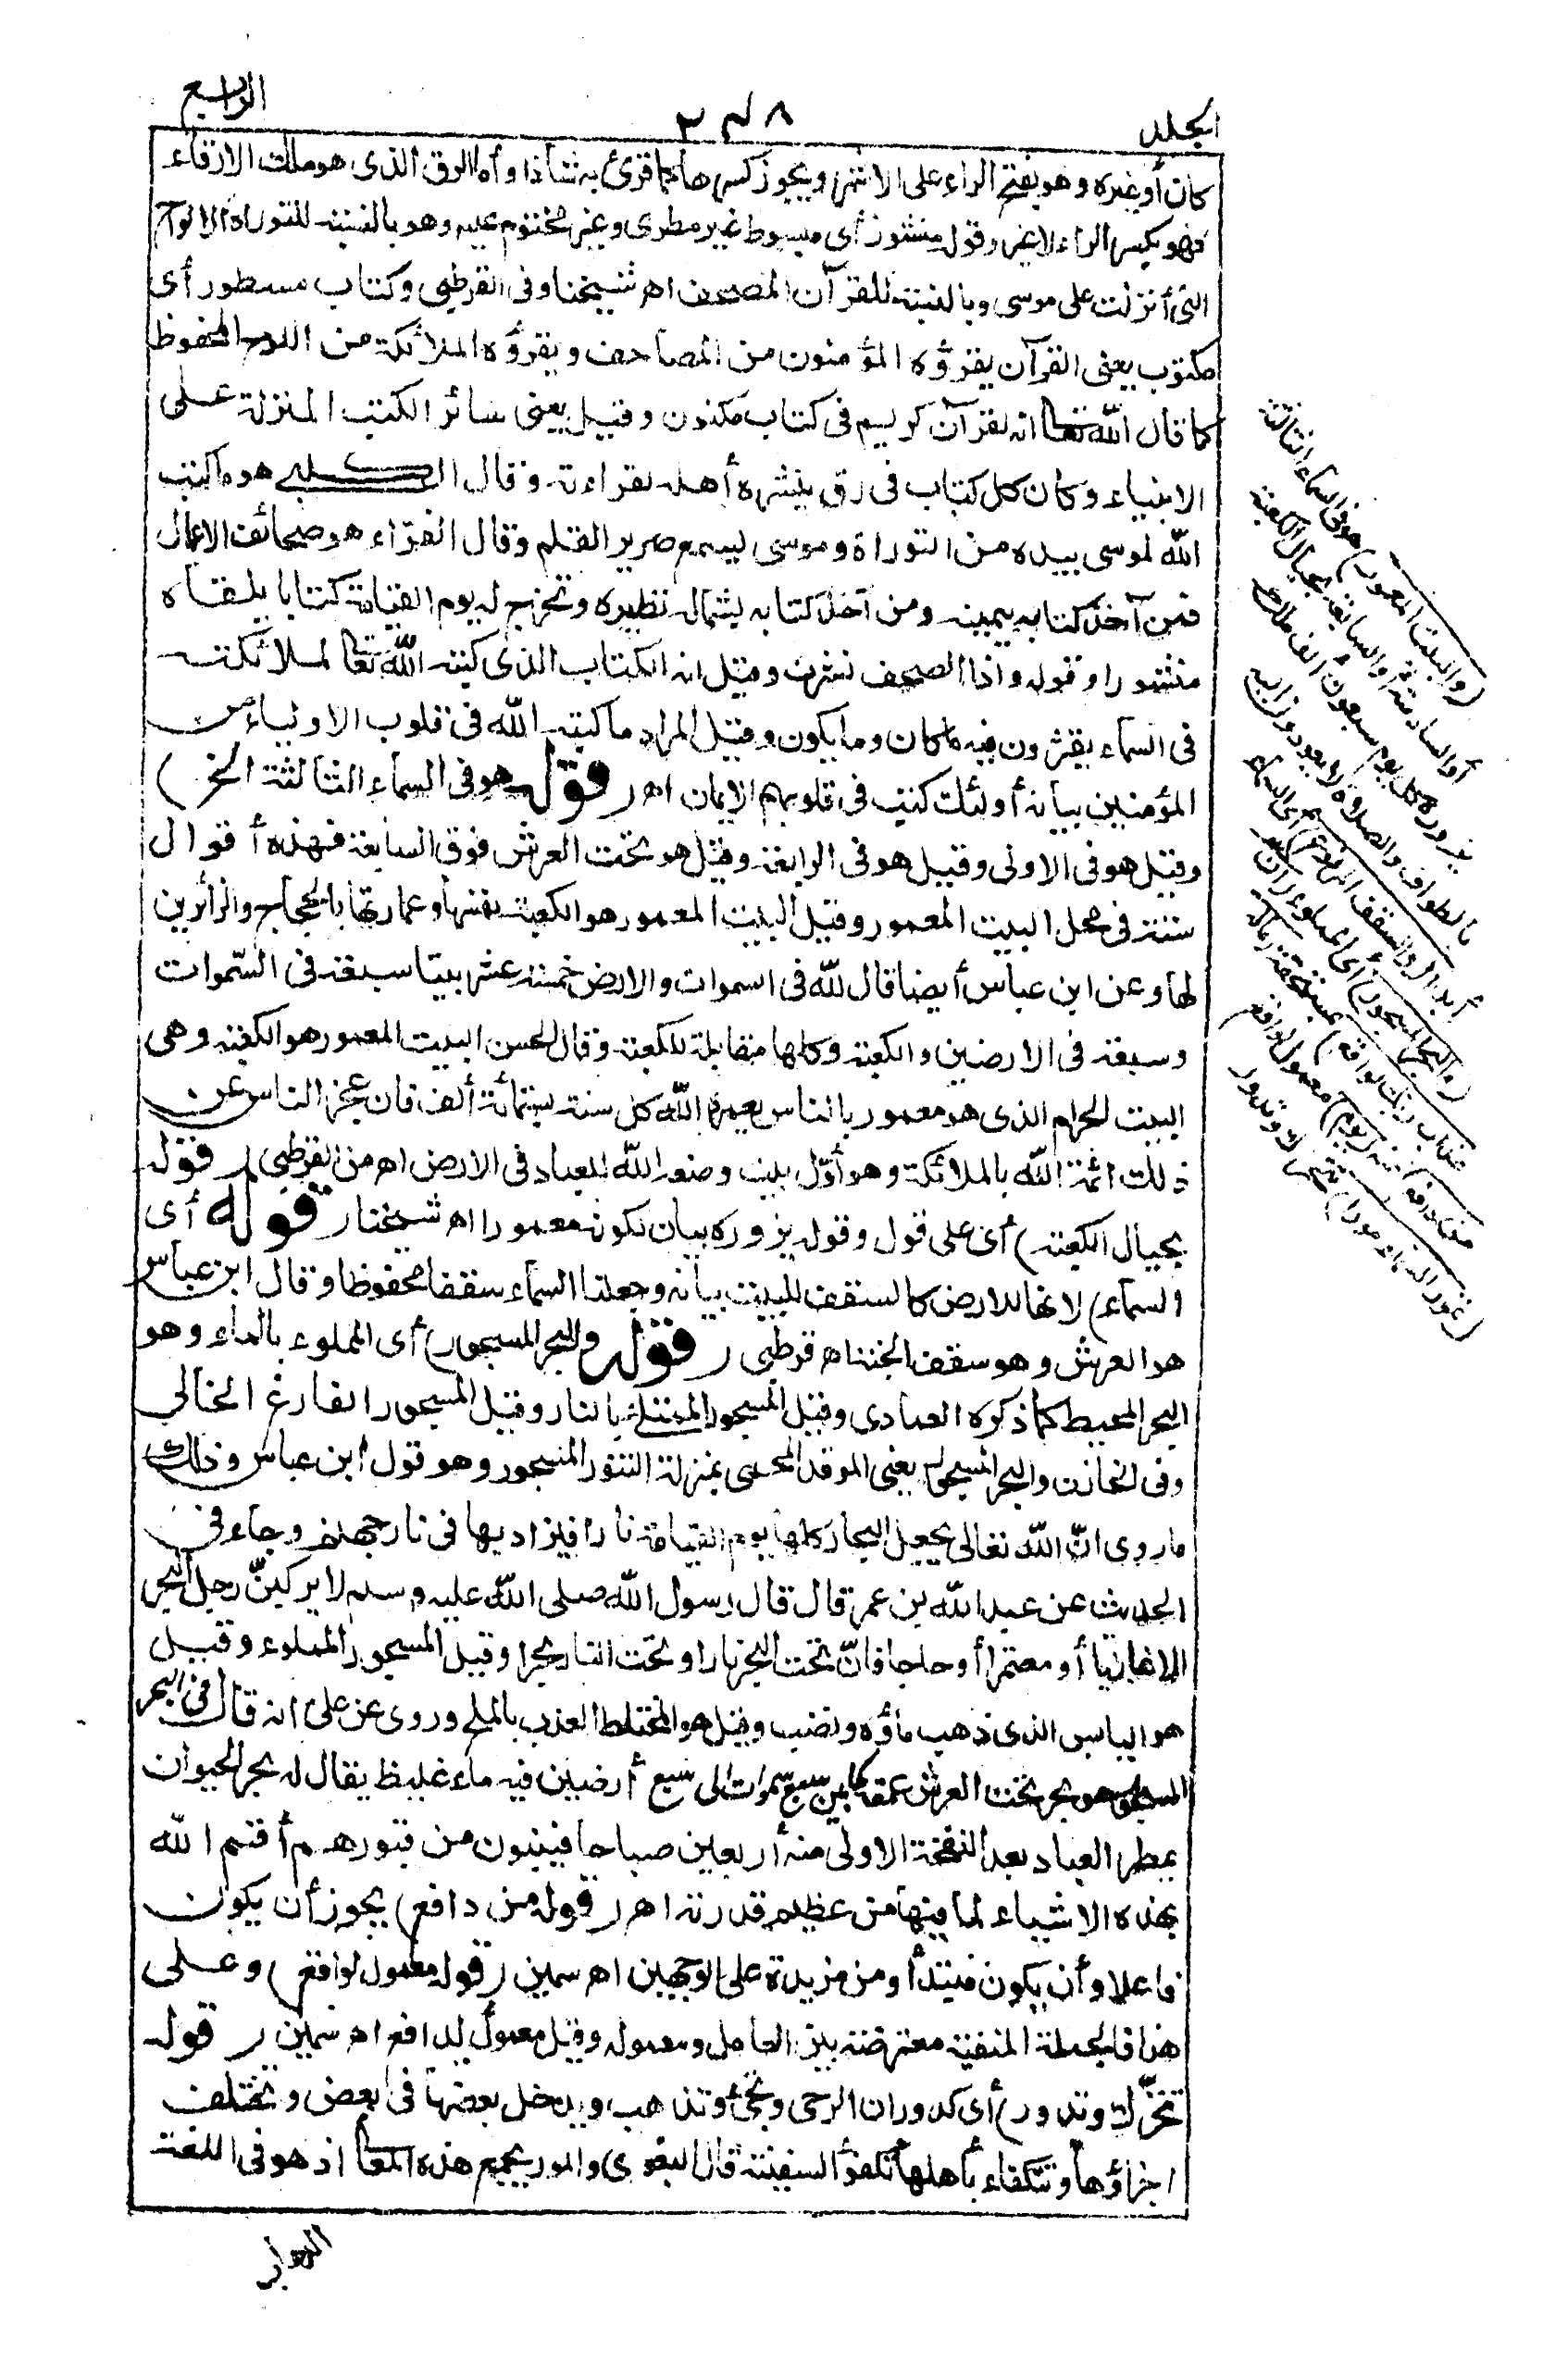 المجلد
٢٣٨
الرابع
كان أو غيره وهو بفتح الراء على الاشهر ويجوز كسرها كما قرئ به شاذا وأما الرق الذى هو ملك الارقاء
فهو بكسر الراء لا غير وقوله منشور أى مبسوط غير مطوى وغير مختوم عليه وهو بالنسبة للتوراة الالواح
التى أنزلت على موسى وبالنسبة للقرآن المصحف اهـ شيخنا وفى القرطبى وكتاب مسطور أى
مكتوب يعنى القرآن يقرؤه المؤمنون من المصاحف ويقرؤه الملائكة من اللوح المحفوظ
كما قال الله تعا انه لقرآن كريم فى كتاب مكنون وقيل يعنى سائر الكتب المنزلة على
الانبياء وكان كل كتاب فى رق ينشره أهله لقراءته وقال الكلبى هو ما كتب
الله لموسى بيده من التوراة وموسى يسمع صرير القلم وقال الفراء هو صحائف الاعمال
فمن آخذ كتابه بيمينه ومن آخذ كتابه بشماله نظيره ونخرج له يوم القيامة كتابا يلقاه
منشورا وقوله واذا الصحف نشرت وقيل انه الكتاب الذى كتبه الله تعا لملائكته
فى السماء يقرؤن فيه ما كان وما يكون وقيل المراد ما كتبه الله فى قلوب الاولياء من
المؤمنين بيانه أولئك كتب فى قلوبهم الايمان اهـ (قوله هو فى السماء الثالثة الخ)
وقيل هو فى الاولى وقيل هو فى الرابعة وقيل هو تحت العرش فوق السابعة فهذه أقوال
ستة فى محل البيت المعمور وقيل البيت المعمور هو الكعبة نفسها وعمارتها بالحجاج والزائرين
لها وعن ابن عباس أيضا قال لله فى السموات والارض خمسة عشر بيتا سبعة فى السموات
وسبعة فى الارضين والكعبة وكلها مقابلة للكعبة وقال الحسن البيت المعمور هو الكعبة وهى
البيت الحرام الذى هو معمور بالناس يعمره الله كل سنة بستمائة ألف فان عجز الناس عن
ذلك اتمه الله بالملائكة وهو أول بيت وضعه الله للعباد فى الارض اهـ من القرطبى (قوله
بحيال الكعبة) أى على قول وقوله يزوره بيان لكونه معمورا اهـ شيخنا (قوله أى
السماء) لانها للارض كالسقف للبيت بيانه وجعلنا السماء سقفا محفوظا وقال ابن عباس
هو العرش وهو سقف الجنة اهـ قرطبى (قوله والبحر المسجور) أى المملوء بالماء وهو
البحر المحيط كما ذكره العمادى وقيل المسجور الممتلئ بالنار وقيل المسجور الفارغ الخالى
وفى الخازن والبحر المسجور يعنى الموقد المحمى بمنزلة التنور المسجور وهو قول ابن عباس وذلك
ما روى انّ الله تعالى يجعل البحار كلها يوم القيامة نارا فيزاد بها فى نار جهنم وجاء فى
الحديث عن عبد الله بن عمر قال قال رسول الله صلى الله عليه وسلم لا يركبنّ رجل البحر
الا غازيا أو معتمرا أو حاجا فانّ تحت البحر نارا وتحت النار بحرا وقيل المسجور المملوء وقيل
هو اليابس الذى ذهب ماؤه ونضب وقيل هو المختلط العذب بالملح وروى عن على انه قال فى البحر
المسجور هو بحر تحت العرش عمقه كما بين سبع سموات الى سبع أرضين فيه ماء غليظ يقال له بحر الحيوان
يمطر العباد بعد النفخة الاولى منه أربعين صباحا فينبتون من قبورهم أقسم الله
بهذه الاشياء لما فيها من عظيم قدرته اهـ (قوله من دافع) يجوز أن يكون
فاعلا وأن يكون مبتدأ ومن مزيدة على الوجهين اهـ سمين (قوله معمول لواقع) وعلى
هذا فالجملة المنفية معترضة بين العامل ومعموله وقيل معمول لدافع اهـ سمين (قوله
تتحرّك وتدور) أى كدوران الرحى وتجئ وتذهب ويدخل بعضها فى بعض وتختلف
اجزاؤها وتتكفأ بأهلها تكفؤ السفينة قال البغوى والمور يجمع هذه المعا اذ هو فى اللغة
(والبيت المعمور) هو فى السماء الثالثة
أو السادسة أو السابعة بحيال الكعبة
يزوره كل يوم سبعون ألف ملك
بالطواف والصلاة لا يعودون اليه
أبدا (والسقف المرفوع) أى السماء
(والبحر المسجور) أى المملوء (ان
عذاب ربك لواقع) بمستحقه (ماله
من دافع) عنه (يوم) معمول لواقع
(تمور السماء مورا) تتحرك وتدور